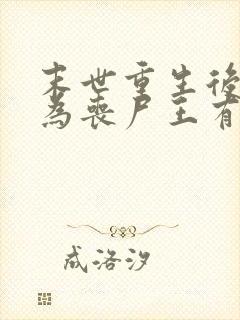 末世重生後
為喪尸王有
成洛汐